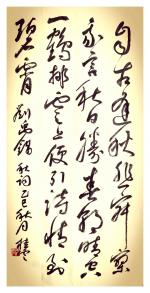 自古逢秋悲寂寥
我言秋日勝春朝晴空
一鶴排雲上便引詩情到
碧霄 劉禹錫秋詞 乙巳秋月